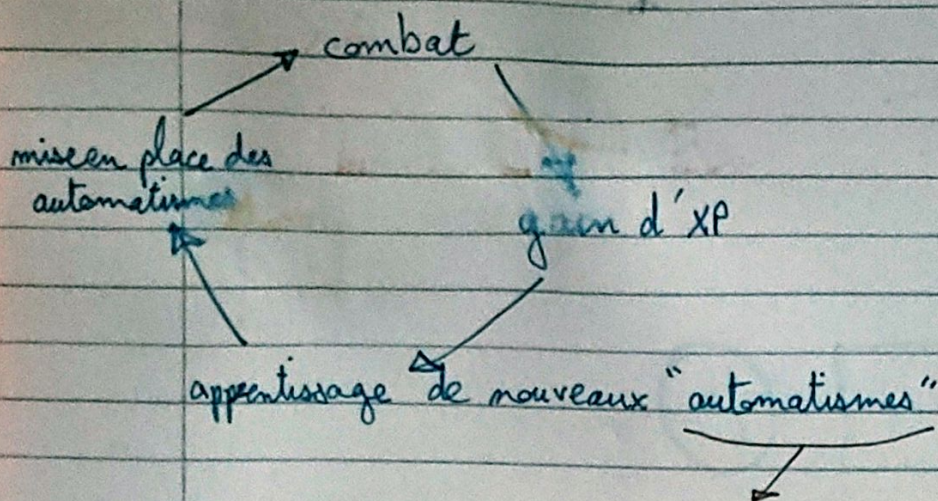 combat
mise en place des
automatismes
gain d'XP
apprentissage de nouveaux "automatismes"